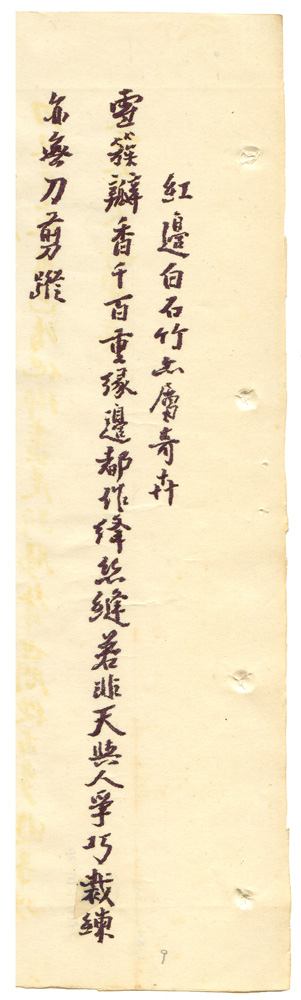 紅邊白石竹亦屬奇卉
雪簇瓣香千百重緣邊都作絳絲縫若非天與人爭巧裁練
亦無刀剪蹤
9